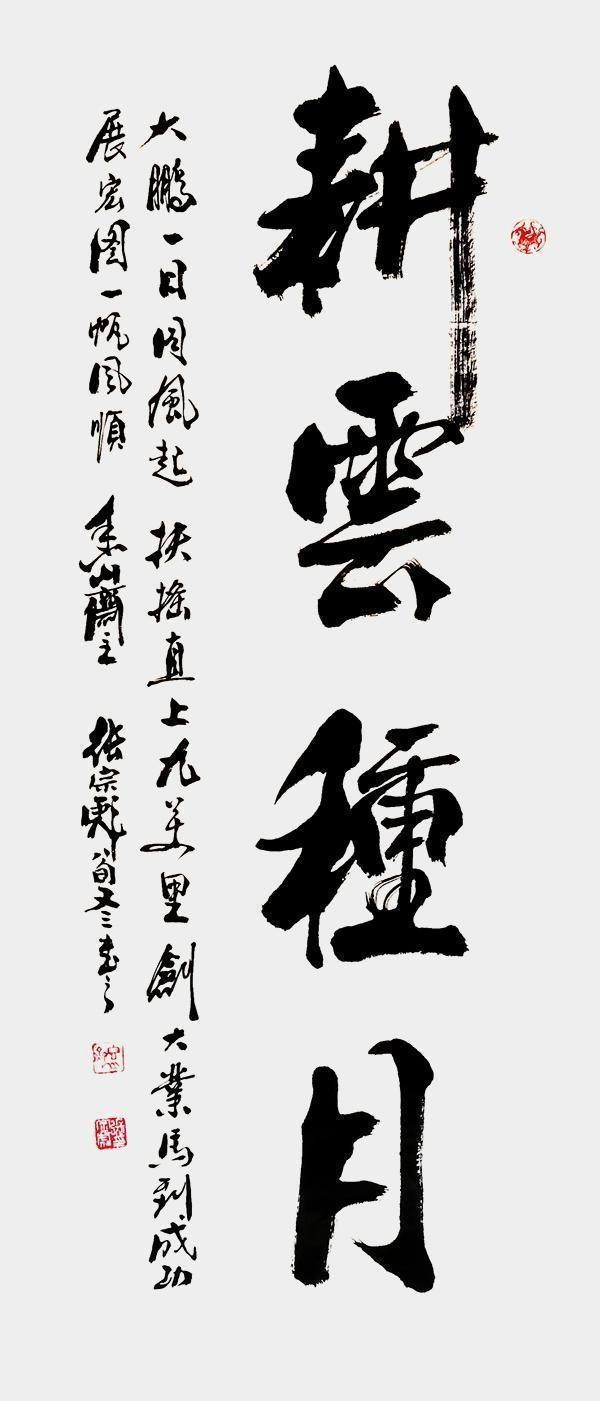 耕雲種月
大鵬一日同風起扶搖直上九萬里創大業馬到成功
展宏图一帆風順 山齋主 張宗